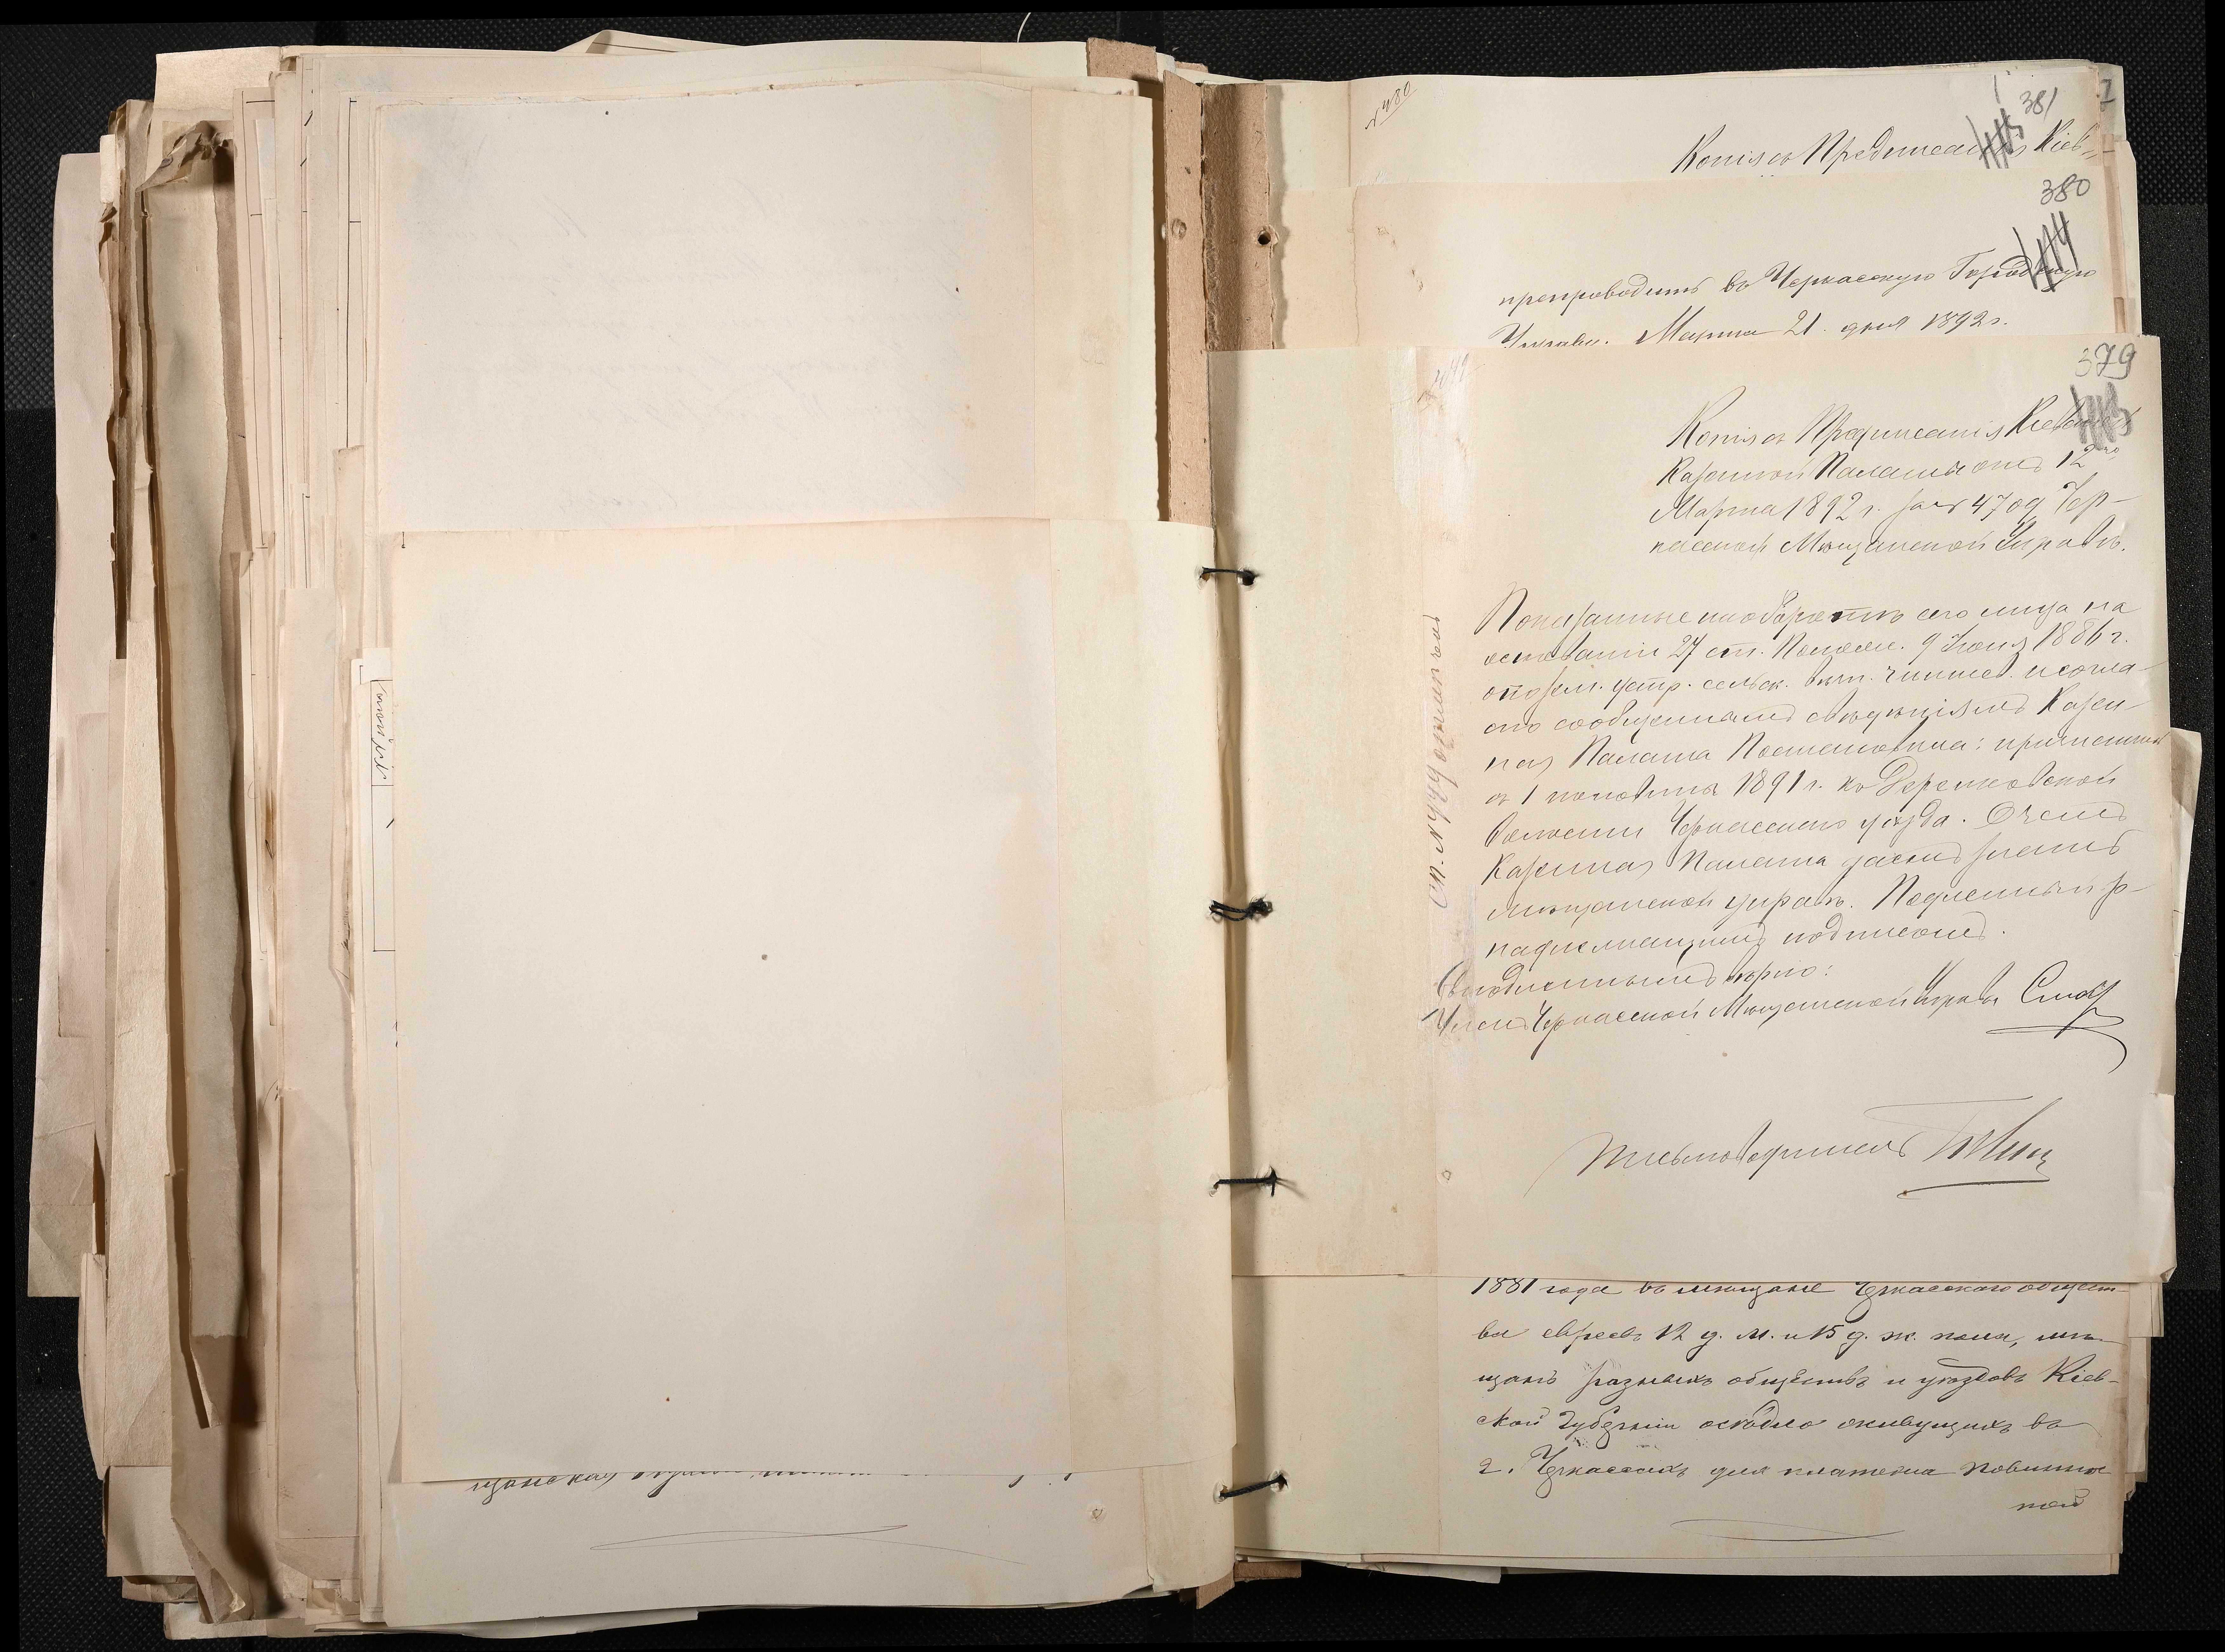 381
Копія съ Предписанія Кіев-
380
препроводить въ Черкасскую Городскую
Управу. Марта 21 дня 1892 г.
379
Копія съ Предписанія Кіевской
Казенной Палаты отъ 12го
Марта 1892 г. за № 4709 Чер-
касской Мѣщанской Управѣ.
Показанные на оборотѣ сего лица на
основаніи 27 ст. Полож. 9 Іюня 1886 г.
о позем. устр. сельск. вѣчн. чиншев. и согла-
сно сообщеннымъ свѣдѣніямъ Казен-
ная Палата Постановила: причислить
съ 1 половины 1891 г. къ Деренковской
волости Черкасскаго уѣзда. О чемъ
Казенная Палата даетъ знать
мѣщанской управѣ. Подлинный за
надлежащимъ подписомъ.
Съ подлиннымъ вѣрно:
Членъ Черкасской Мѣщанской Управы
Письмоводитель
1881 года въ мѣщане Черкасскаго общест-
ва евреевъ 12 д. м. и 15 д. ж. пола, мѣ-
щанъ разныхъ обществъ и уѣздовъ Кіев-
ской губерніи осѣдло живущихъ въ
г. Черкассахъ для платежа повинно-
стей